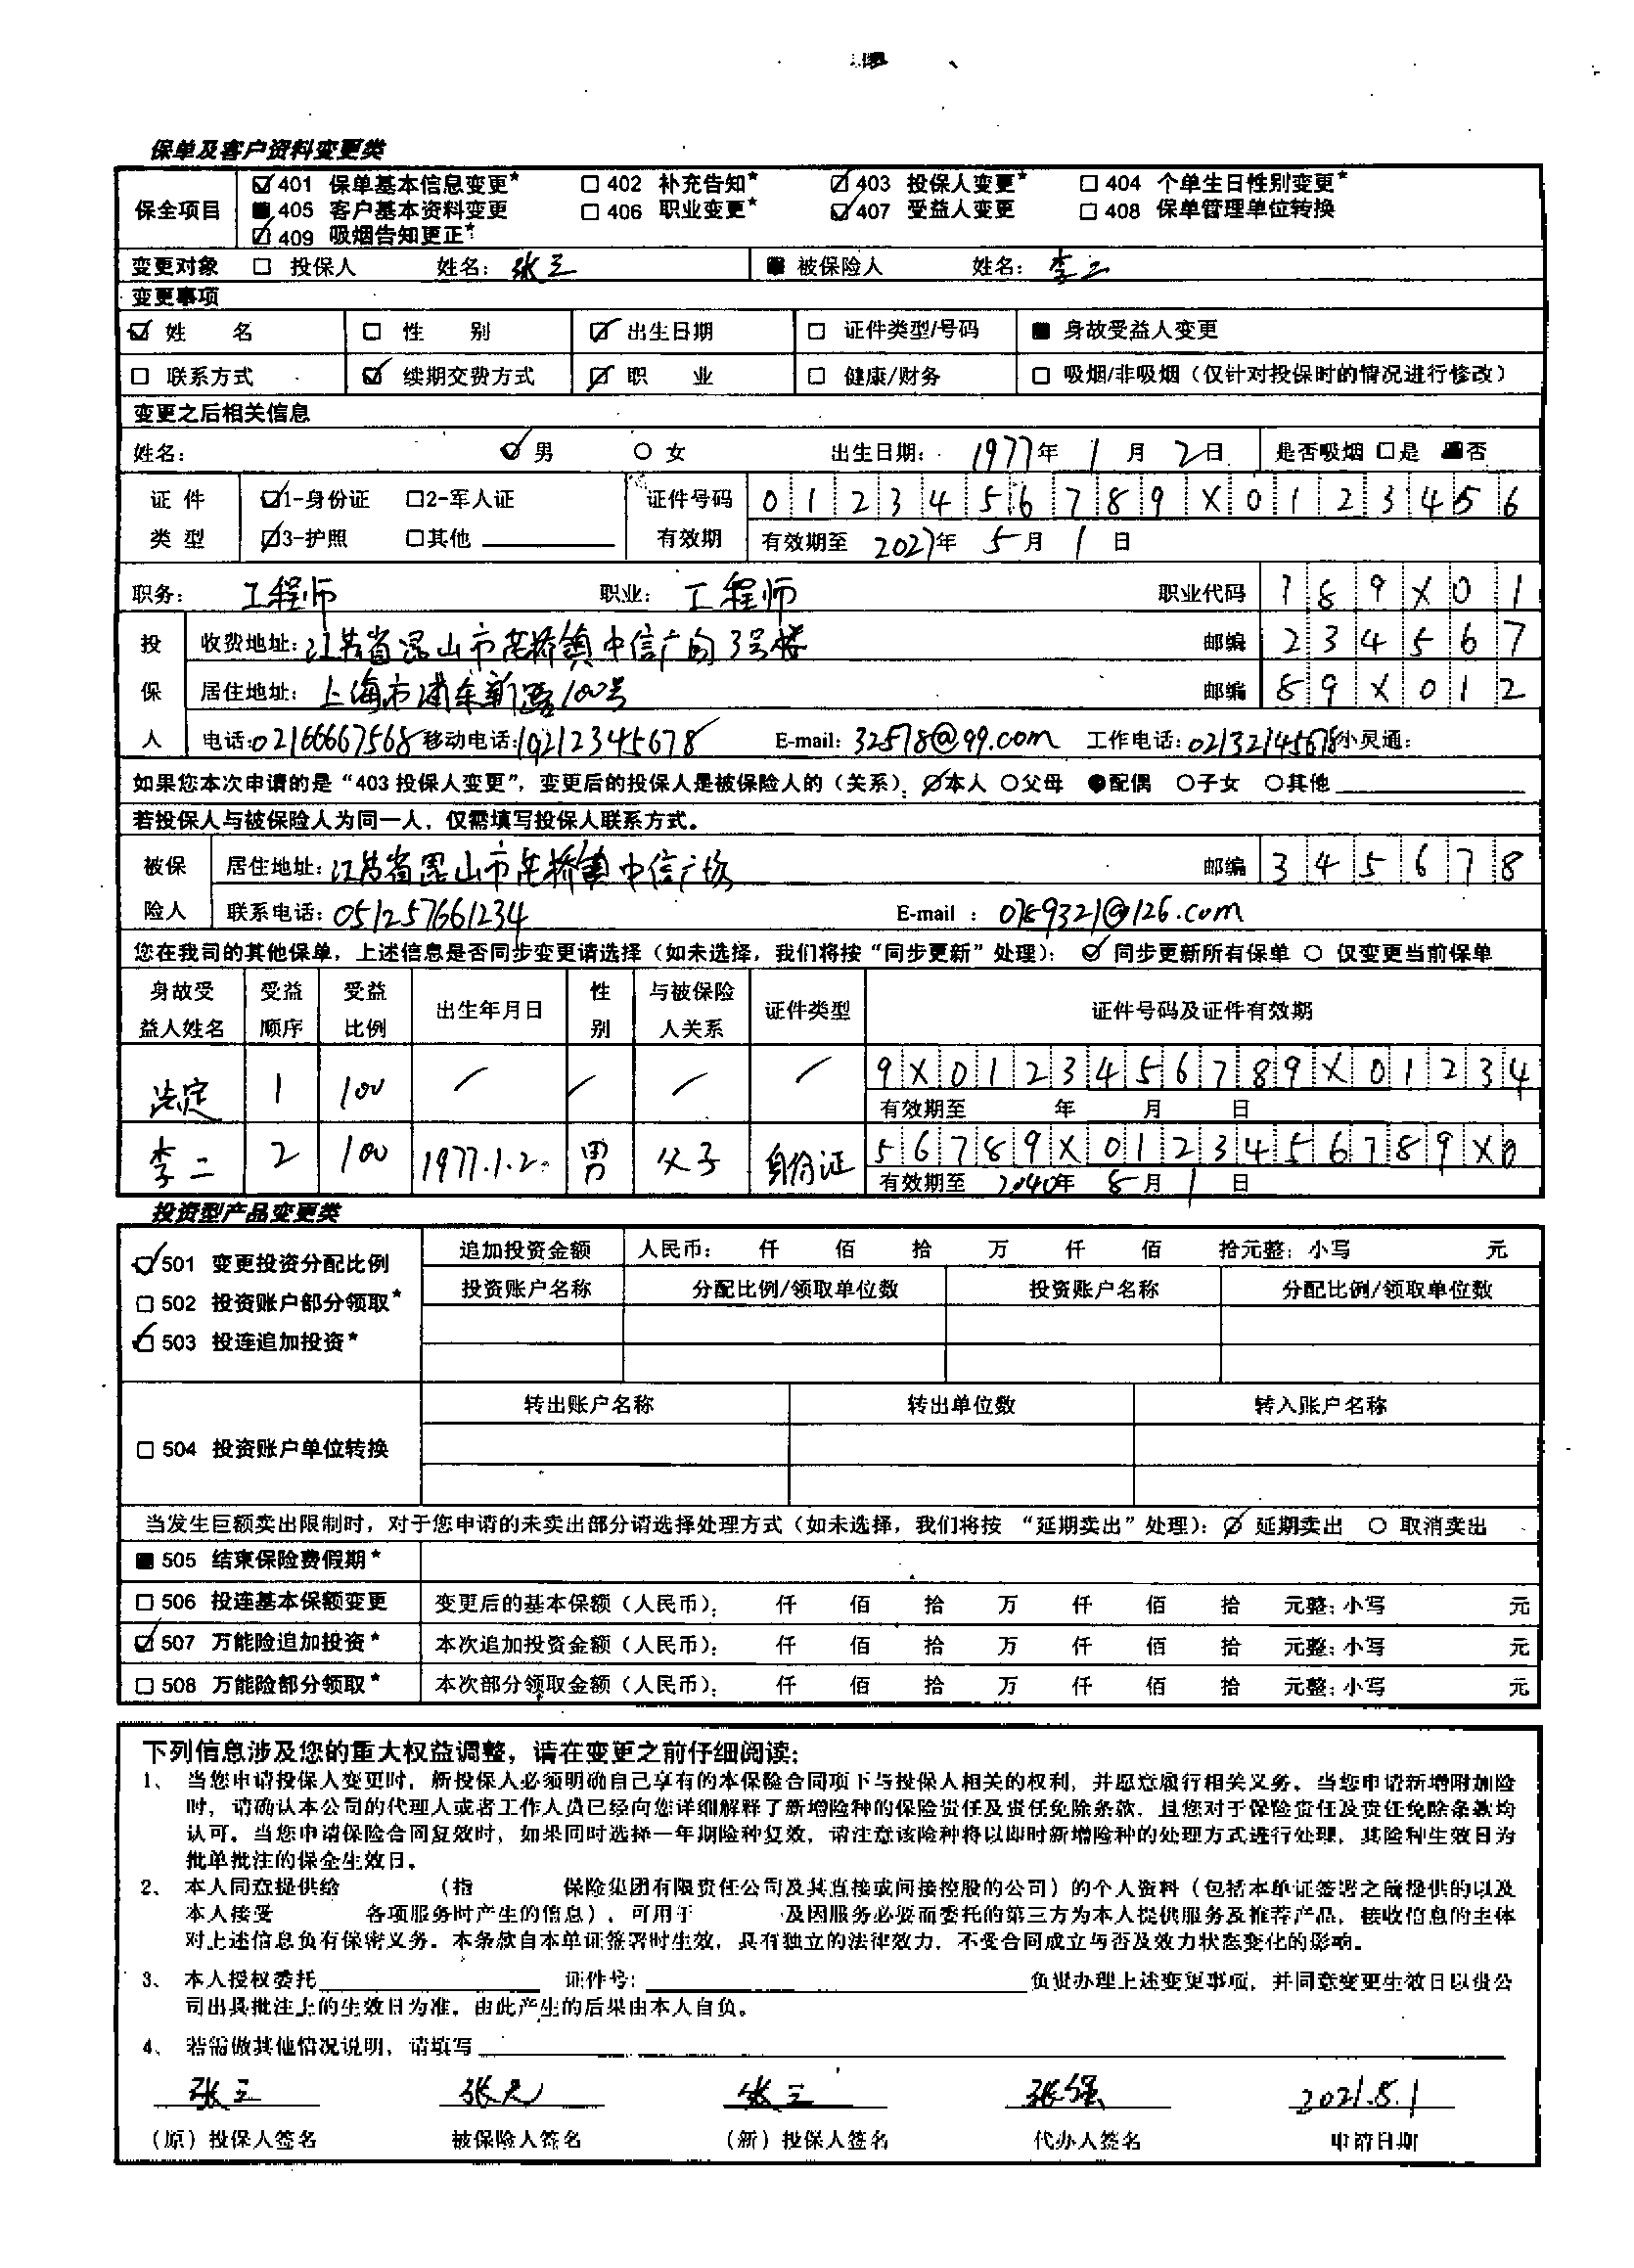 保单及客户资料变更类
保全项目 ☑401 保单基本信息变更* □402 补充告知* ☑403 投保人变更* □404 个单生日性别变更*
■405 客户基本资料变更 □406 职业变更* ☑407 受益人变更 □408 保单管理单位转换
☑409 吸烟告知更正*
变更对象 □ 投保人 姓名: 张三 ■ 被保险人 姓名: 李二
变更事项
☑ 姓 名 □ 性 别 ☑ 出生日期 □ 证件类型/号码 ■ 身故受益人变更
□ 联系方式 ☑ 续期交费方式 ☑ 职 业 □ 健康/财务 □ 吸烟/非吸烟（仅针对投保时的情况进行修改）
变更之后相关信息
姓名: ☑ 男 ○ 女 出生日期: 1977年 1 月 2日 是否吸烟 □是 ■否
证 件 ☑1-身份证 □2-军人证 证件号码 0 1 2 3 4 5 6 7 8 9 X 0 1 2 3 4 5 6
类 型 ☑3-护照 □其他 有效期 有效期至 2027年 5月 1 日
职务: 工程师 职业: 工程师 职业代码 7 8 9 X 0 1
投 收费地址: 江苏省昆山市花桥镇中信广 3号楼 邮编 2 3 4 5 6 7
保 居住地址: 上海市浦东新路100号 邮编 8 9 X 0 1 2
人 电话:02166667568 移动电话:19212345678 E-mail: 32578@99.com 工作电话: 02132145678 小灵通:
如果您本次申请的是“403 投保人变更”，变更后的投保人是被保险人的（关系）: ☑本人 ○父母 ●配偶 ○子女 ○其他
若投保人与被保险人为同一人，仅需填写投保人联系方式。
被保 居住地址: 江苏省昆山市花桥镇中信广场 邮编 3 4 5 6 7 8
险人 联系电话: 051257661234 E-mail : 0789321@126.com
您在我司的其他保单，上述信息是否同步变更请选择（如未选择，我们将按“同步更新”处理）: ☑ 同步更新所有保单 ○ 仅变更当前保单
身故受 受益 受益 出生年月日 性 与被保险 证件类型 证件号码及证件有效期
益人姓名 顺序 比例 别 人关系
法定 1 100 / / / / 9 X 0 1 2 3 4 5 6 7 8 9 X 0 1 2 3 4
有效期至 年 月 日
李二 2 100 1977.1.2. 男 父子 身份证 5 6 7 8 9 X 0 1 2 3 4 5 6 7 8 9 X 0
有效期至 2040年 8月 1 日
投资型产品变更类
☑501 变更投资分配比例 追加投资金额 人民币: 仟 佰 拾 万 仟 佰 拾元整: 小写 元
投资账户名称 分配比例/领取单位数 投资账户名称 分配比例/领取单位数
□502 投资账户部分领取*
☑503 投连追加投资*
转出账户名称 转出单位数 转入账户名称
□504 投资账户单位转换
当发生巨额卖出限制时，对于您申请的未卖出部分请选择处理方式（如未选择，我们将按 “延期卖出”处理）: ☑ 延期卖出 ○ 取消卖出
■505 结束保险费假期*
□506 投连基本保额变更 变更后的基本保额（人民币）: 仟 佰 拾 万 仟 佰 拾 元整: 小写 元
☑507 万能险追加投资* 本次追加投资金额（人民币）: 仟 佰 拾 万 仟 佰 拾 元整: 小写 元
□508 万能险部分领取* 本次部分领取金额（人民币）: 仟 佰 拾 万 仟 佰 拾 元整: 小写 元
下列信息涉及您的重大权益调整，请在变更之前仔细阅读:
1、 当您申请投保人变更时，新投保人必须明确自己享有的本保险合同项下与投保人相关的权利，并愿意履行相关义务。当您申请新增附加险
时，请确认本公司的代理人或者工作人员已经向您详细解释了新增险种的保险责任及责任免除条款，且您对于保险责任及责任免除条款均
认可。当您申请保险合同复效时，如果同时选择一年期险种复效，请注意该险种将以即时新增险种的处理方式进行处理，其险种生效日为
批单批注的保全生效日。
2、 本人同意提供给 （指 保险集团有限责任公司及其直接或间接控股的公司）的个人资料（包括本单证签署之前提供的以及
本人接受 各项服务时产生的信息），可用于 及因服务必要而委托的第三方为本人提供服务及推荐产品，接收信息的主体
对上述信息负有保密义务。本条款自本单证签署时生效，具有独立的法律效力，不受合同成立与否及效力状态变化的影响。
3、 本人授权委托 证件号: 负责办理上述变更事项，并同意变更生效日以贵公
司出具批注上的生效日为准，由此产生的后果由本人自负。
4、 若需做其他情况说明，请填写
张三 张 张三 张强 2021.8.1
（原）投保人签名 被保险人签名 （新）投保人签名 代办人签名 申请日期